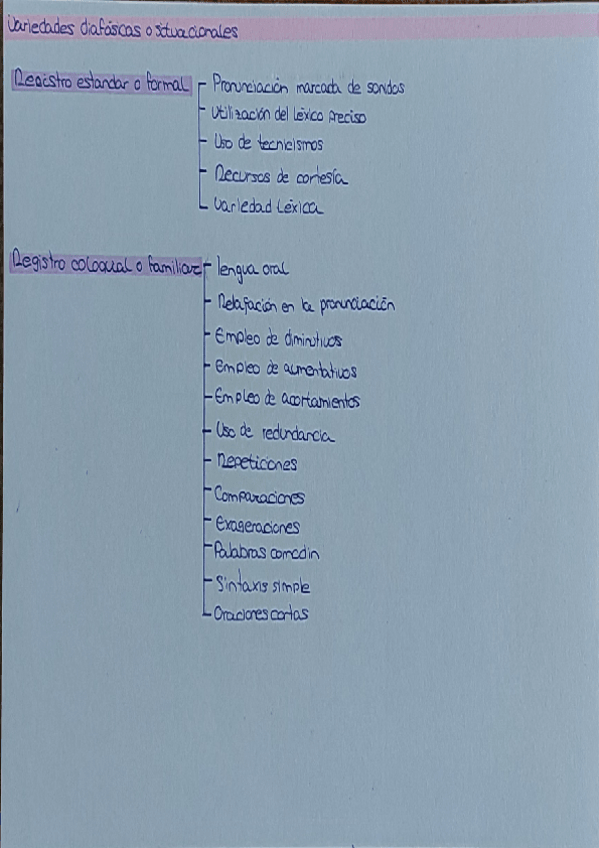 Variedades diafásicas o situacionales
Registro estandar o formal
Pronunciación marcada de sonidos
Utilización del léxico preciso
Uso de tecnicismos
Recursos de cortesía
Variedad Léxica
Registro coloquial o familiar
lengua oral
Relajación en la pronunciación
Empleo de diminutivos
Empleo de aumentativos
Empleo de acortamientos
Uso de redundancia
Repeticiones
Comparaciones
Exageraciones
Palabras comodin
Sintaxis simple
Oraciones cortas